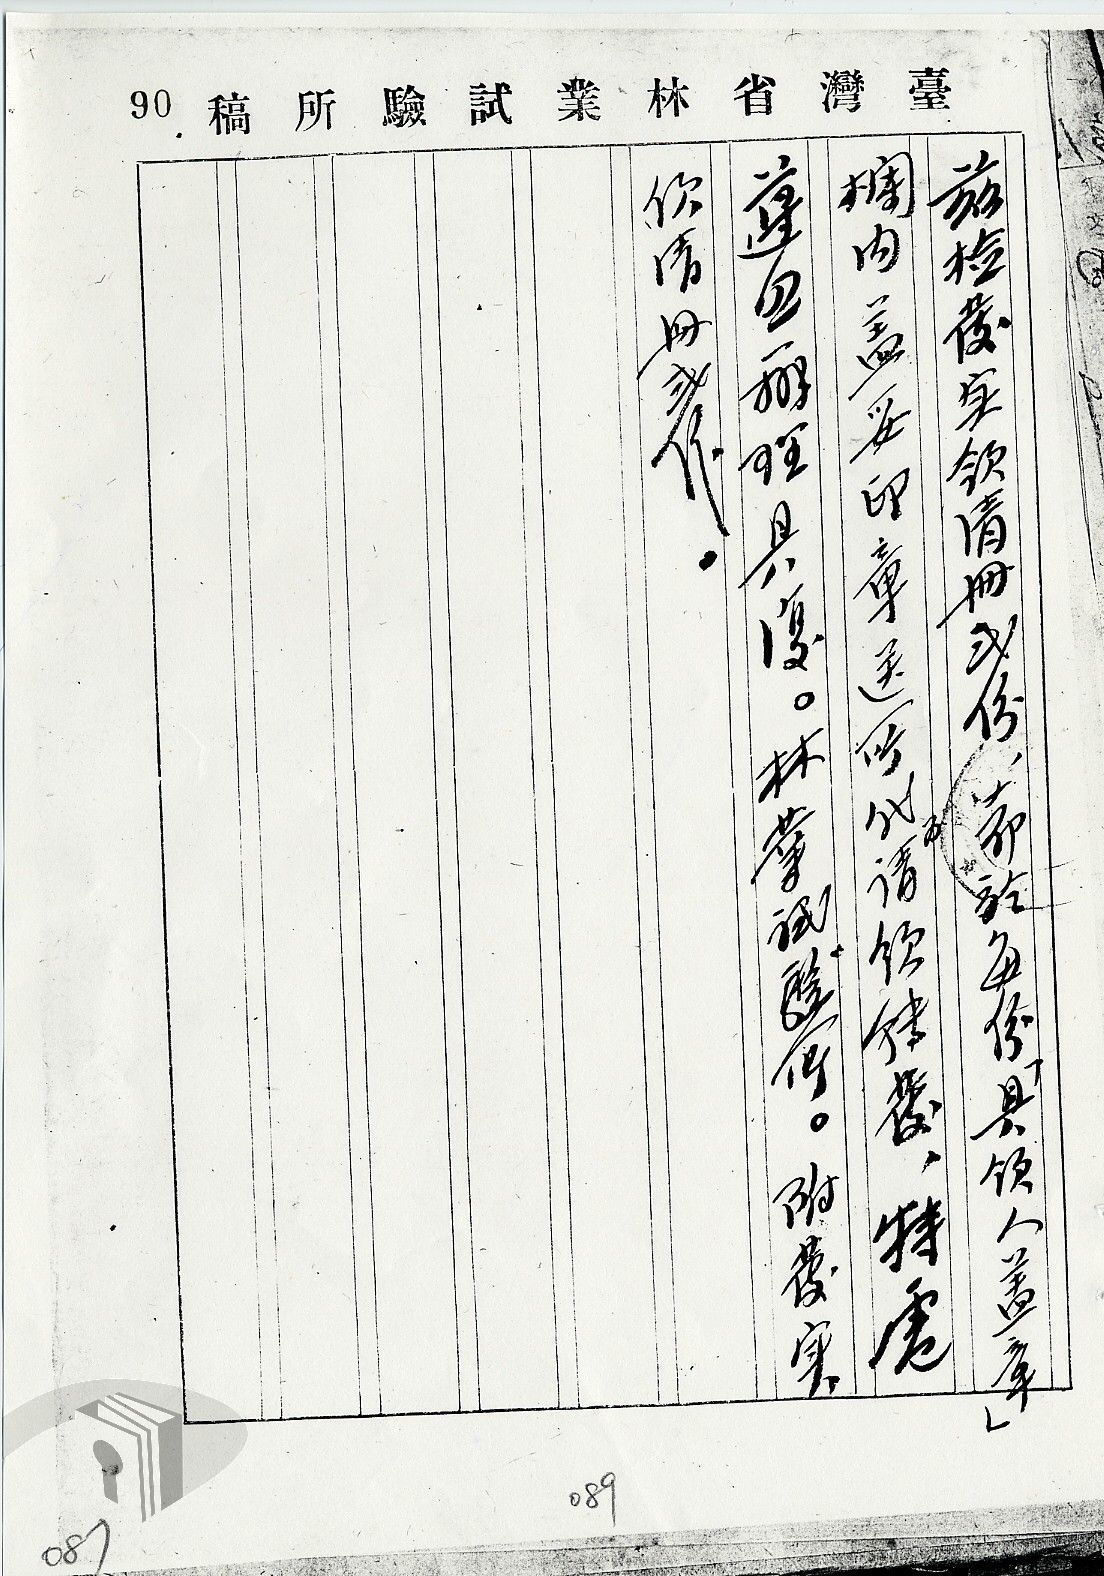 臺灣省林業試驗所稿
90
茲檢發实領清冊弍份、希於每份「具領人蓋章」
欄内蓋妥印章送所以便請領轉發、特電
遵即辦理具復。林業試驗所。附發实
領清冊弍份。
089
087